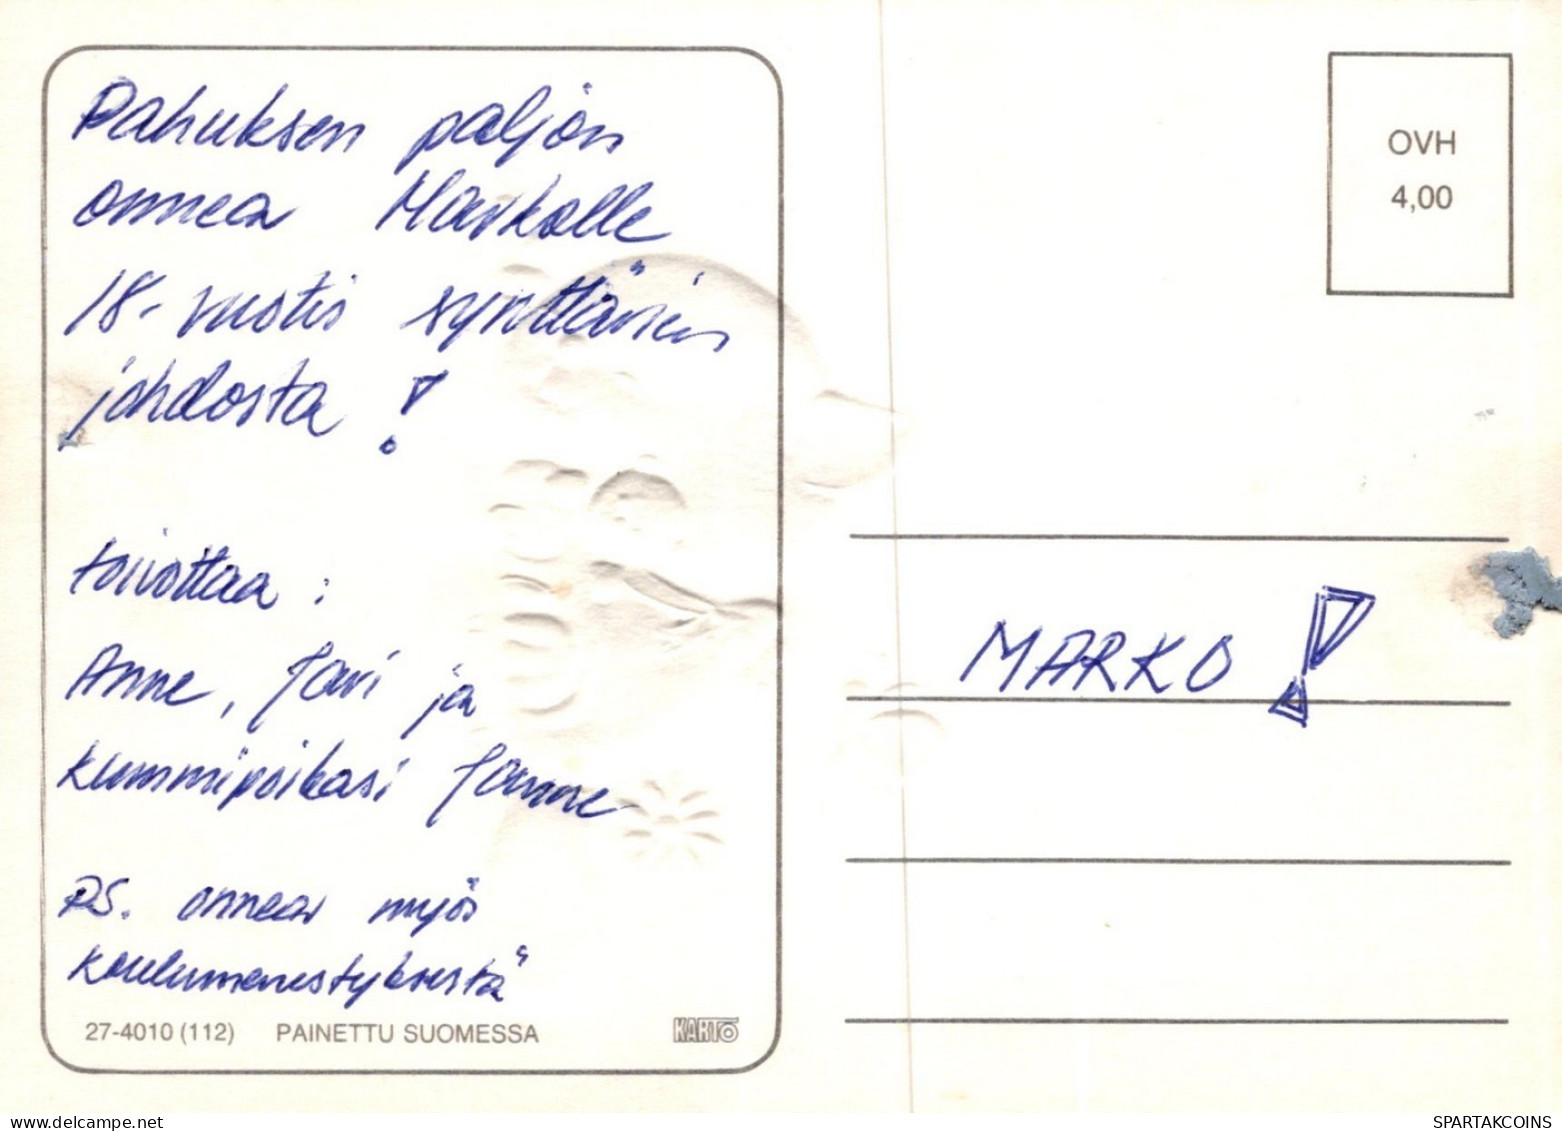 Pahuksen paljon
onnea Markolle
18-vuotis synttärien
johdosta !
toivottaa :
Anne, Jari ja
kummipoikasi Janne
PS. onnea myös
koulumenestyksestä
27-4010 (112) PAINETTU SUOMESSA KARTO
OVH
4,00
MARKO !
SPARTAKCOINS